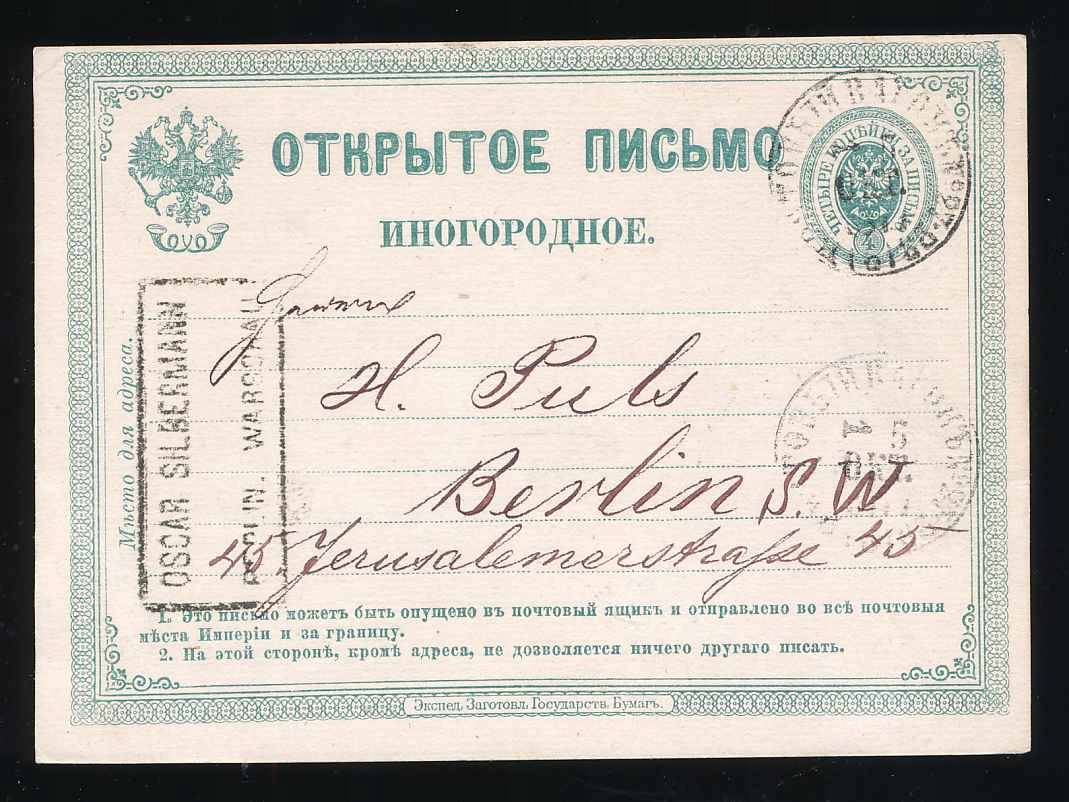 ОТКРЫТОЕ ПИСЬМО
ИНОГОРОДНОЕ.
ЧЕТЫРЕ КОПѢЙКИ ЗА ПИСЬМО
4
Мѣсто для адреса.
OSCAR SILBERMANN
BERLIN. WARSCHAU
H. Puls
Berlin S. W
45 Jerusalemerstraße 45
5
ОКТ.
1. Это письмо можетъ быть опущено въ почтовый ящикъ и отправлено во всѣ почтовыя
мѣста Имперіи и за границу.
2. На этой сторонѣ, кромѣ адреса, не дозволяется ничего другаго писать.
Экспед. Заготовл. Государств. Бумагъ.